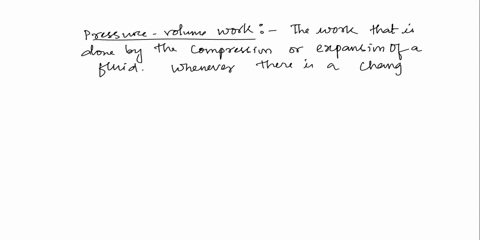 Pressure-volume work:- The work that is
done by the compression or expansion of a
fluid. Whenever there is a chang